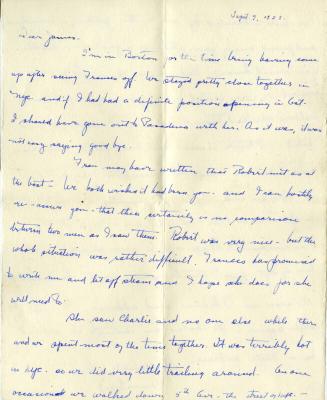 Sept. 9, 1953.
Dear James.
I'm in Boston for the time being having come
up after seeing Frances off. We stayed pretty close together in
Nyc. and if I had had a definite position opening in Cal.
I should have gone out to Pasadena with her. As it was, it was
not easy saying good bye.
Fran may have written that Robert met us at
the boat - We both wished it had been you - and I can hastily
re-assure you - that there certainly is no comparison
between two men as I saw them. Robert was very nice - but the
whole situation was rather difficult. Frances has promised
to write me and let off steam and I hope she does for she
will need to.
She saw Charlie and no one else while there
and we spent most of the time together. It was terribly hot
in Nyc. so we did very little trailing around. On one
occasion we walked down 5th Ave. - the street of